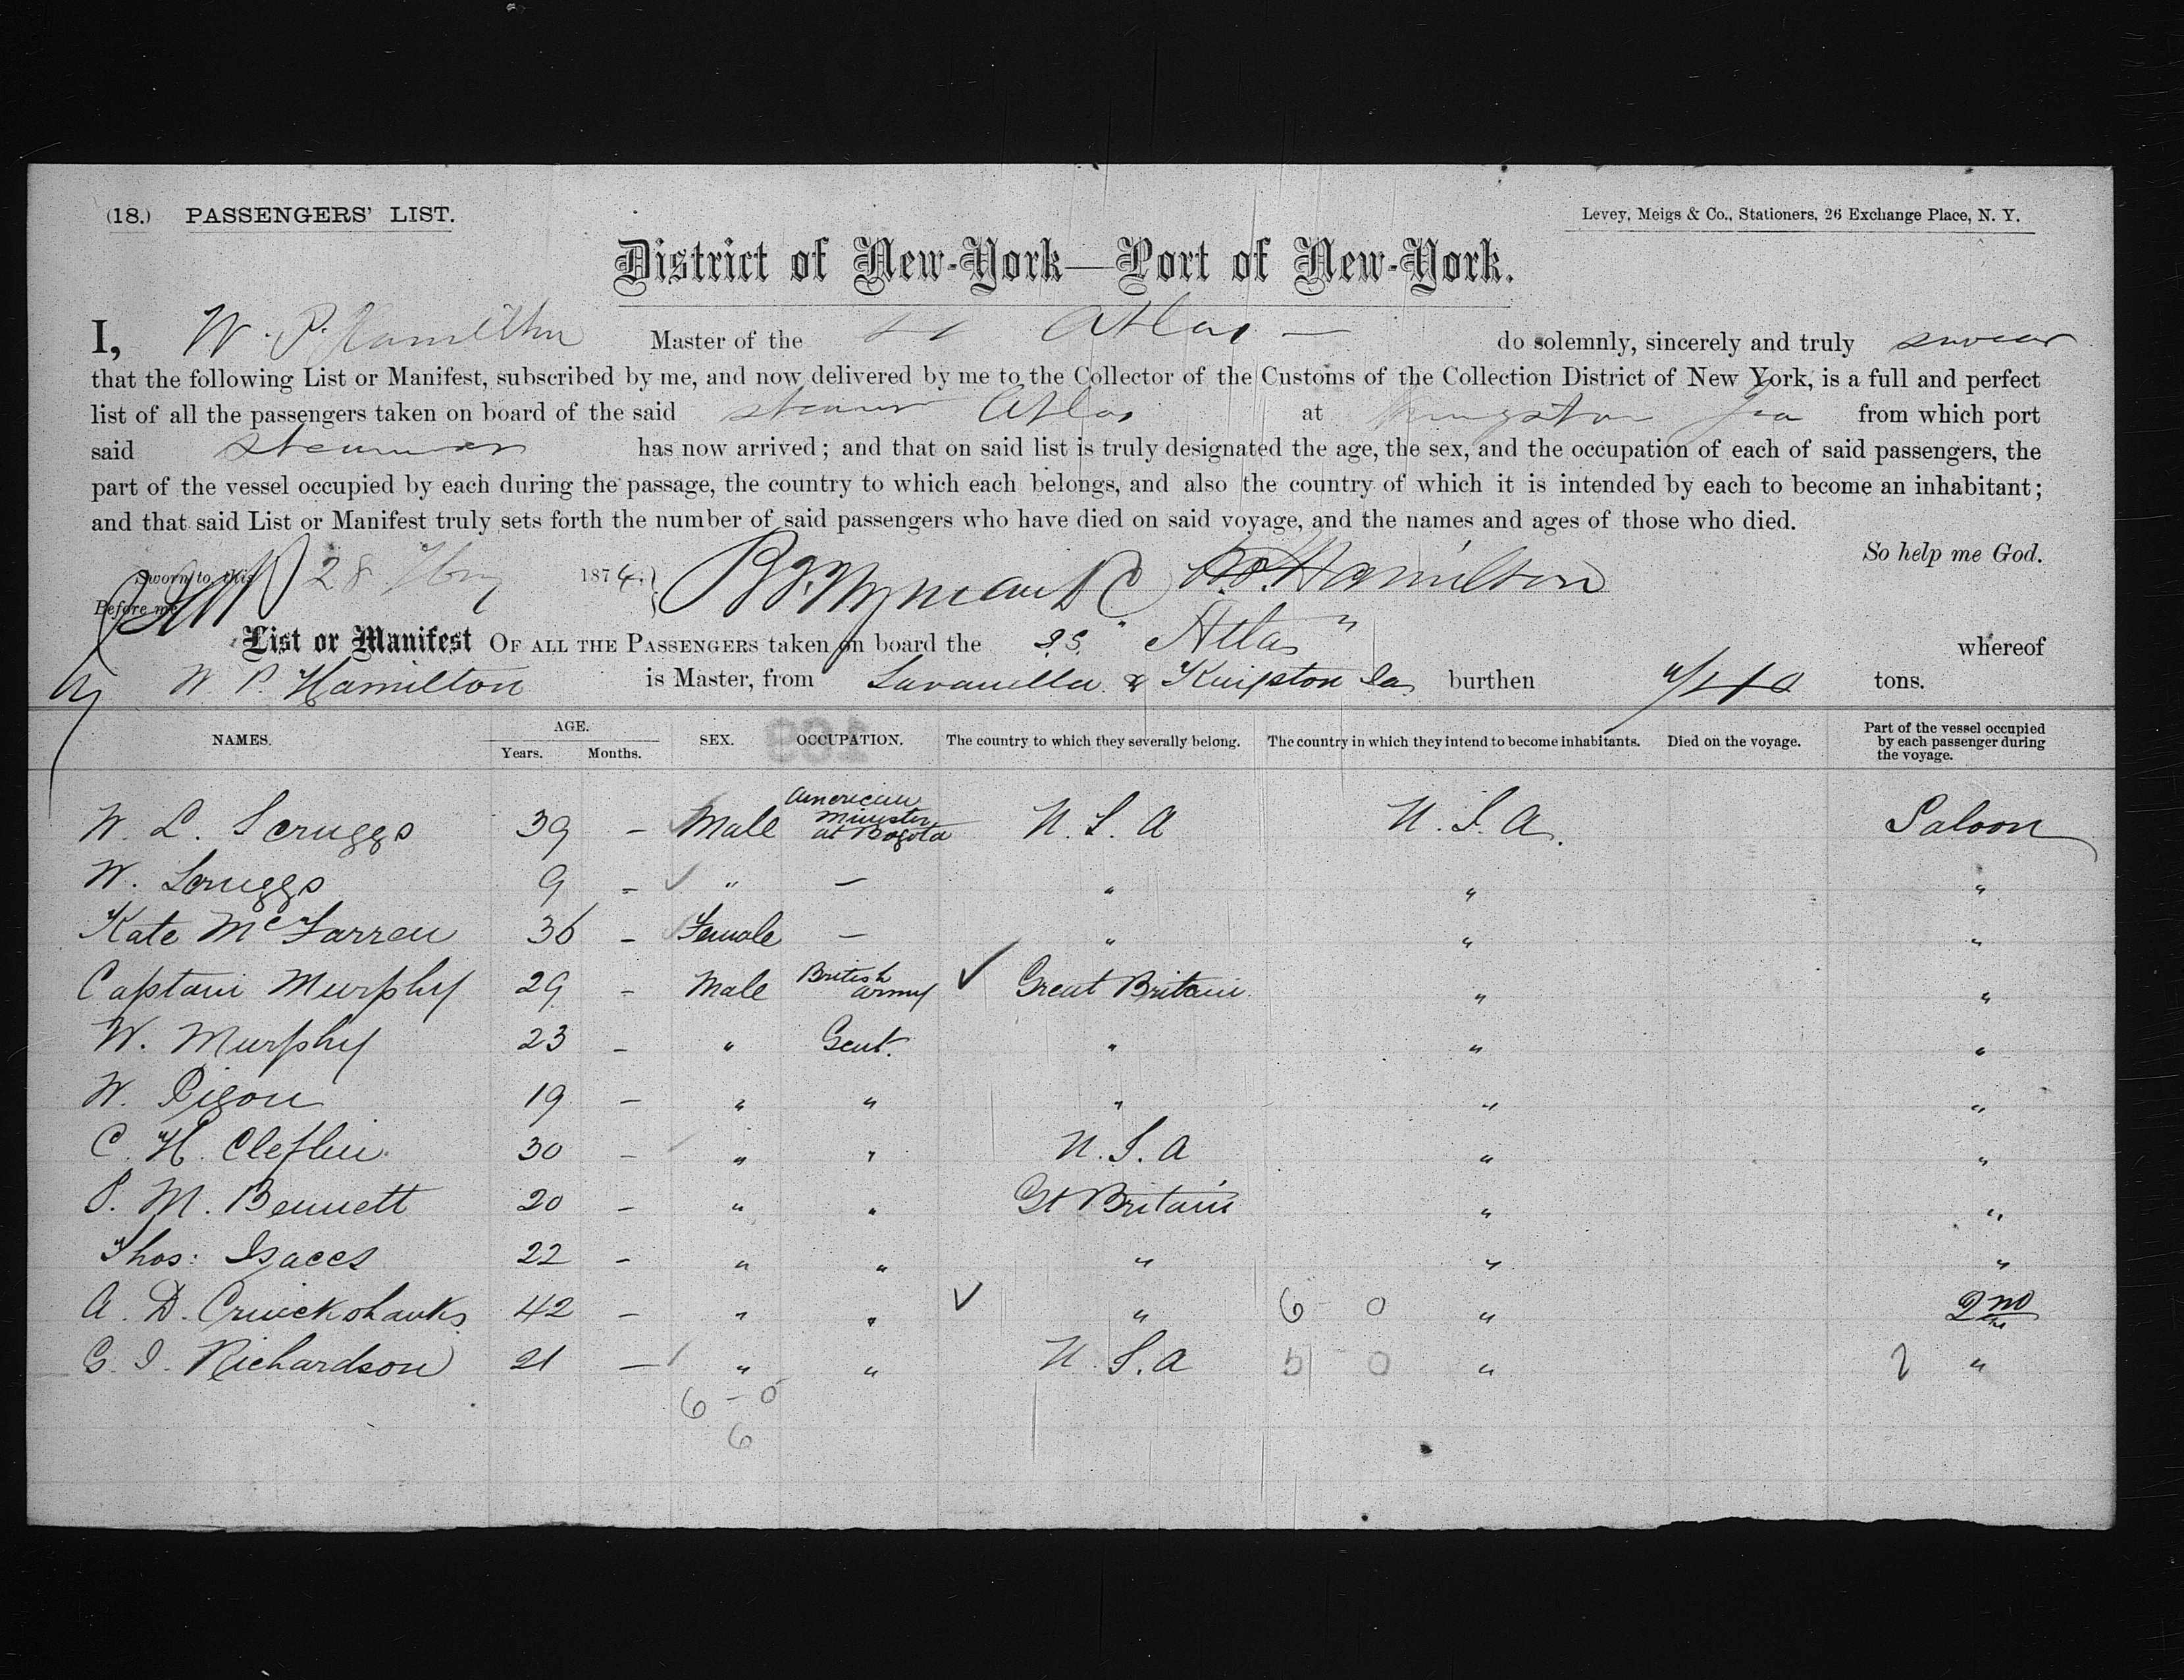 (18.) PASSENGERS' LIST.
Levey, Meigs & Co., Stationers, 26 Exchange Place, N. Y.
District of New-York—Port of New-York.
I, W. P. Hamilton Master of the SS Atlas — do solemnly, sincerely and truly swear
that the following List or Manifest, subscribed by me, and now delivered by me to the Collector of the Customs of the Collection District of New York, is a full and perfect
list of all the passengers taken on board of the said steamer Atlas at Kingston Jca from which port
said steamer has now arrived; and that on said list is truly designated the age, the sex, and the occupation of each of said passengers, the
part of the vessel occupied by each during the passage, the country to which each belongs, and also the country of which it is intended by each to become an inhabitant;
and that said List or Manifest truly sets forth the number of said passengers who have died on said voyage, and the names and ages of those who died.
So help me God.
Sworn to, this 28 1874 W. P. Hamilton
Before me
List or Manifest OF ALL THE PASSENGERS taken on board the S.S. "Atlas" whereof
W. P. Hamilton is Master, from Savanilla & Kingston Ja burthen tons.
NAMES. AGE. SEX. OCCUPATION. The country to which they severally belong. The country in which they intend to become inhabitants. Died on the voyage. Part of the vessel occupied by each passenger during the voyage.
Years. Months.
W. L. Scruggs 39 – Male American Minister at Bogota U. S. A U. S. A. Saloon
W. Scruggs 9 – " — " " "
Kate McFarren 36 – Female — " " "
Captain Murphy 29 – Male British army Great Britain " "
W. Murphy 23 – " Gent. " " "
W. Pigou 19 – " " " " "
C. H. Cleflin 30 – " " U. S. A " "
P. M. Bennett 20 – " " Gt Britain " "
Thos: Isaccs 22 – " " " " "
A. D. Cruickshanks 42 – " " " 6 0 " 2nd
G. I. Richardson 21 — " " U. S. A 5 0 " 2 "
6 – 0
6